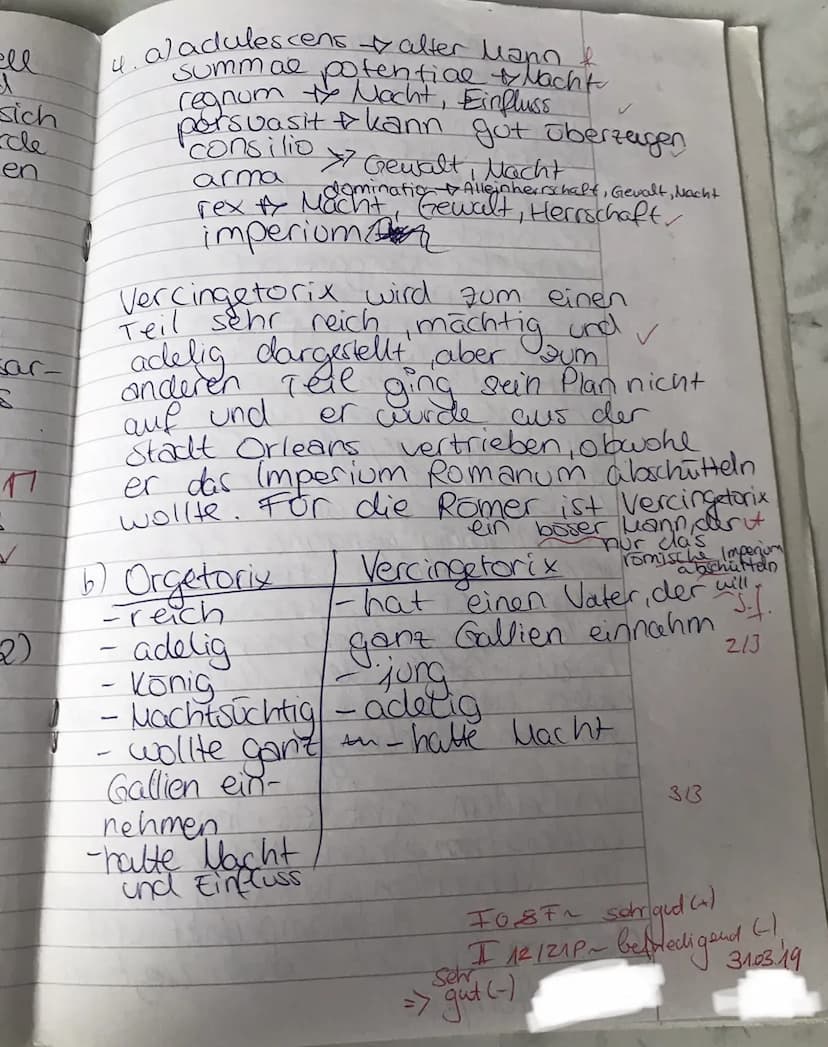 ell
sich
rde
en
4. a) adulescens → alter Mann f
summae potentiae → Macht
regnum → Macht, Einfluss ✓
persuasit → kann gut überzeugen ✓
consilio
arma → Gewalt, Macht
domination → Alleinherrschaft, Gewalt, Macht
rex → Macht, Gewalt, Herrschaft ✓
imperium
Vercingetorix wird zum einen
Teil sehr reich, mächtig und ✓
adelig dargestellt, aber zum
anderen Teil ging sein Plan nicht
auf und er wurde aus der
Stadt Orleans vertrieben, obwohl
er das Imperium Romanum abschütteln
wollte. Für die Römer ist Vercingetorix
ein böser Mann, der
nur das
römische Imperium
abschütteln
will.
s.f.
2/3
b) Orgetorix | Vercingetorix
- reich
- adelig
- König
- Machtsüchtig
- wollte ganz
Gallien ein-
nehmen
- hatte Macht
und Einfluss
- hat einen Vater, der
ganz Gallien einnahm
- jung
- adelig
- hatte Macht
3/3
I 0,8 F ~ sehr gut (-)
II 12/21P ~ befriedigend (-)
31.03.19
=> sehr gut (-)
sar-
s
17
✓
2)